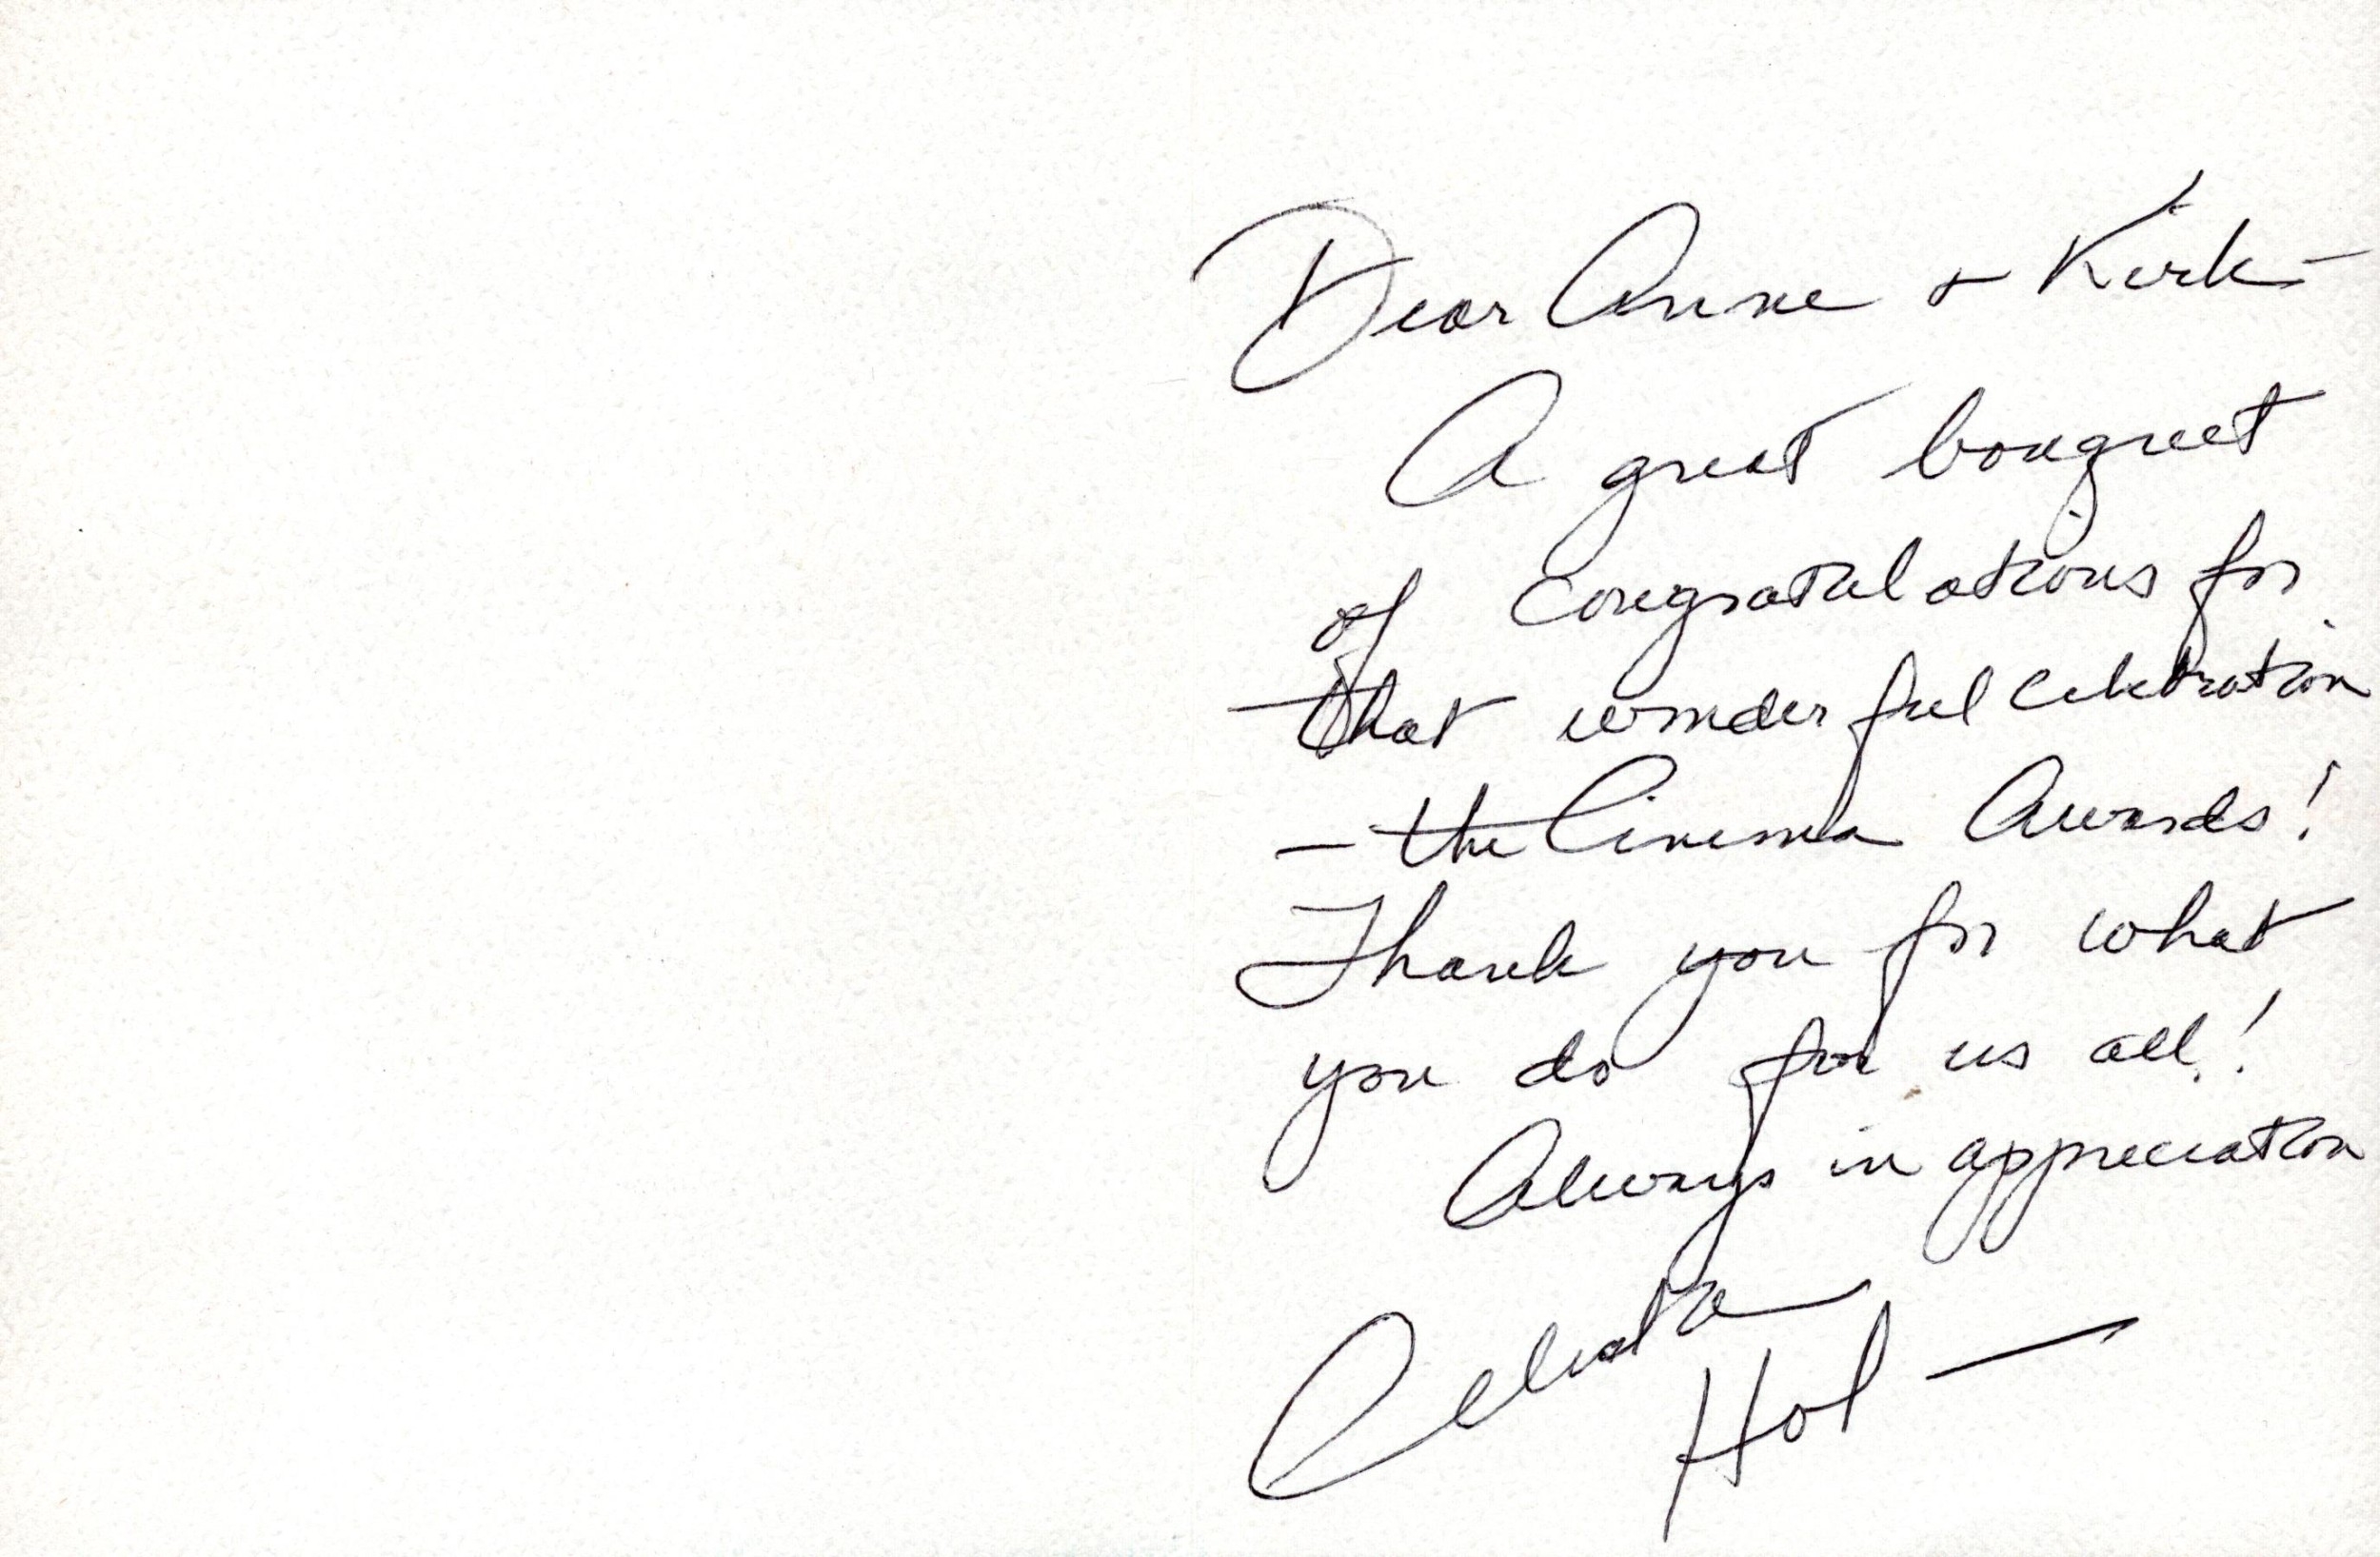 Dear Anne & Kirk –
A great bouquet
of congratulations for
that wonderful celebration
– the Cinema Awards!
Thank you for what
you do for us all!
Always in appreciation
Celeste
Hol—